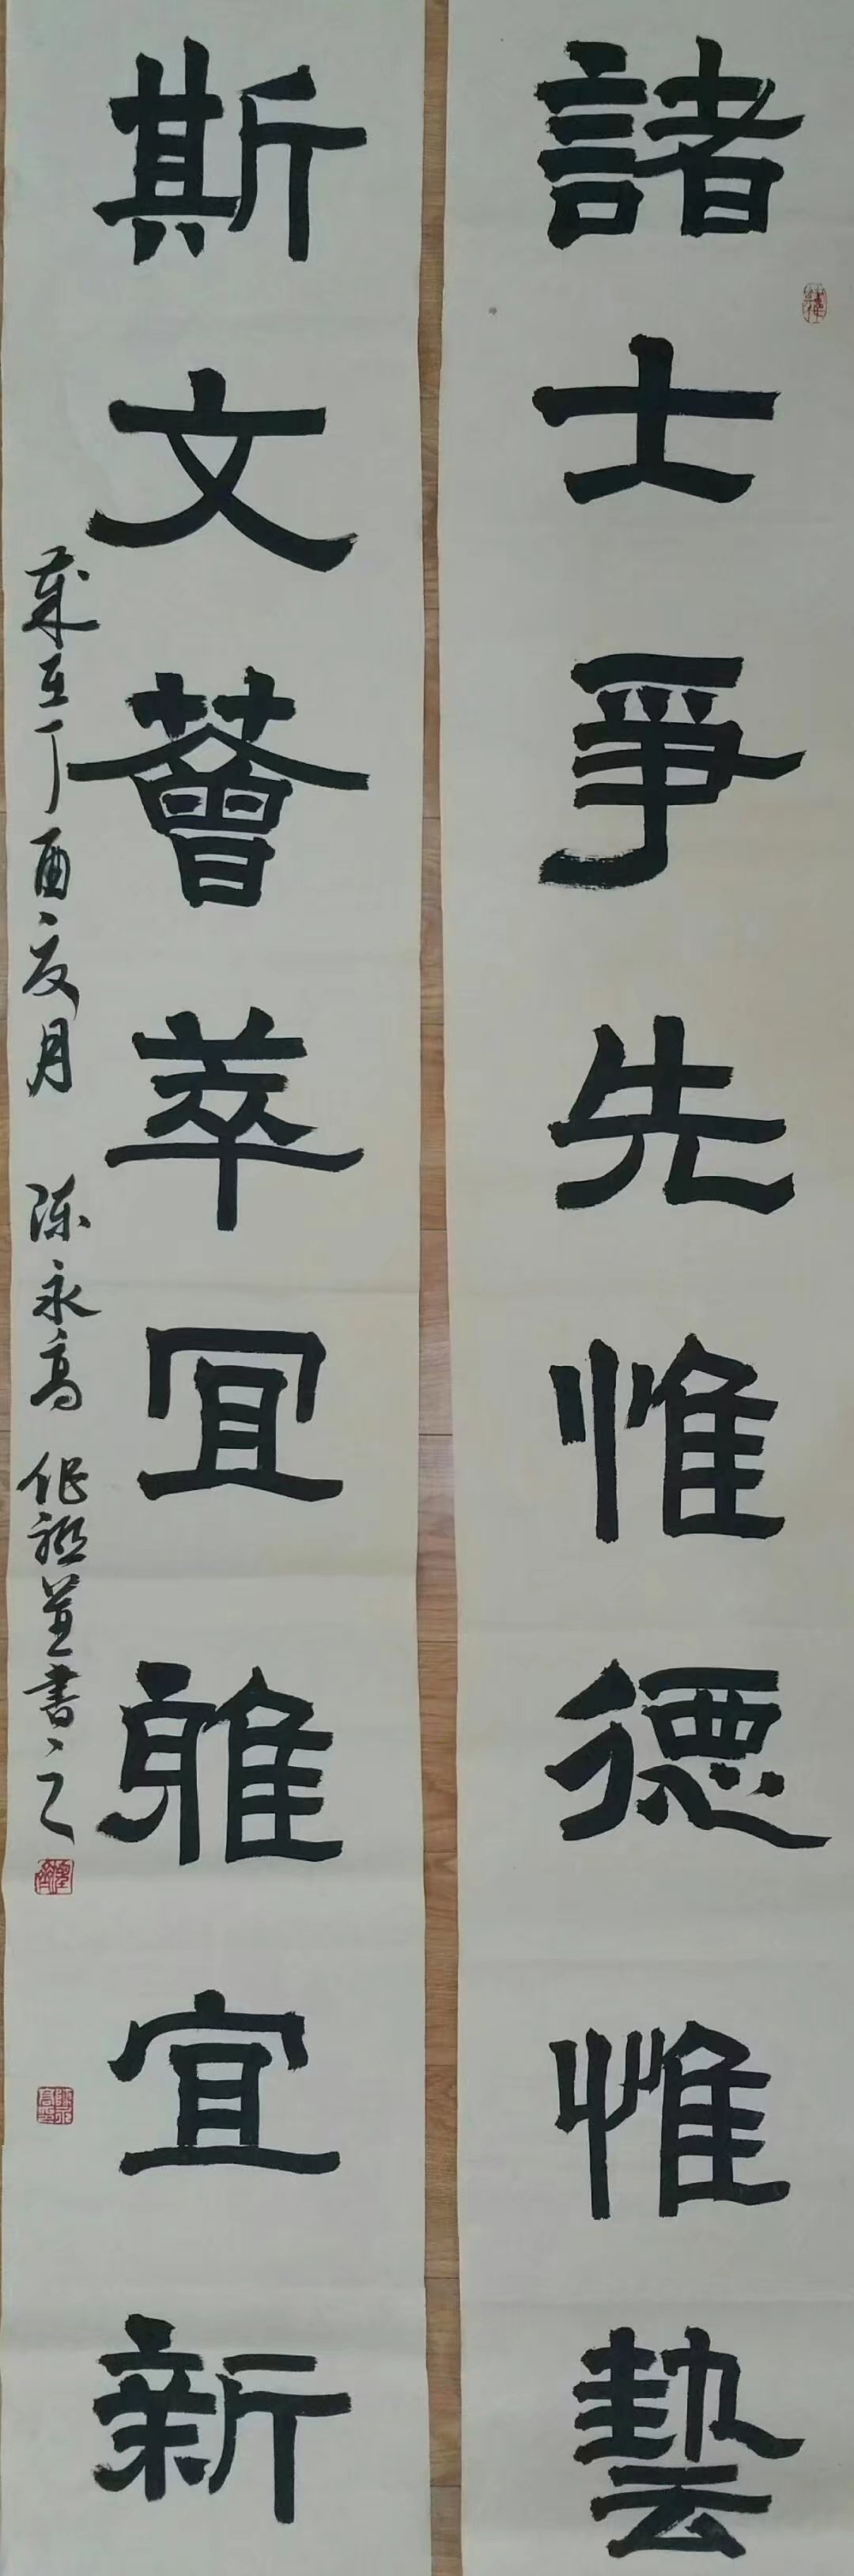 諸士爭先惟德惟藝
斯文薈萃宜雅宜新
歲在丁酉夏月 陈永高 作聯並書之